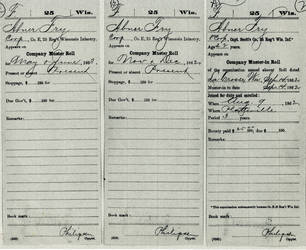 F 25 Wis.
Abner Fry
Corp., Co. E, 25 Reg't Wisconsin Infantry.
Appears on
Company Muster Roll
for May & June, 1863.
Present or absent Present
Stoppage, $ 100 for
Due Gov't, $ 100 for
Remarks:
Book mark:
Philipson
Copyist.
F 25 Wis.
Abner Fry
Corp., Co. E, 25 Reg't Wisconsin Infantry.
Appears on
Company Muster Roll
for Nov & Dec, 1862.
Present or absent Present
Stoppage, $ 100 for
Due Gov't, $ 100 for
Remarks:
Book mark:
Philipson
Copyist.
F 25 Wis.
Abner Fry
Appears on
Company Muster-in Roll
of the organization named above. Roll dated
Sept 14, 1862.
Muster-in to date Sept 14, 1862.
Joined for duty and enrolled:
When Aug 9, 1862.
Where Platteville
Period 3 years.
Bounty paid $ 25 100; due $ 100
Remarks:
Book mark:
Philipson
Copyist.